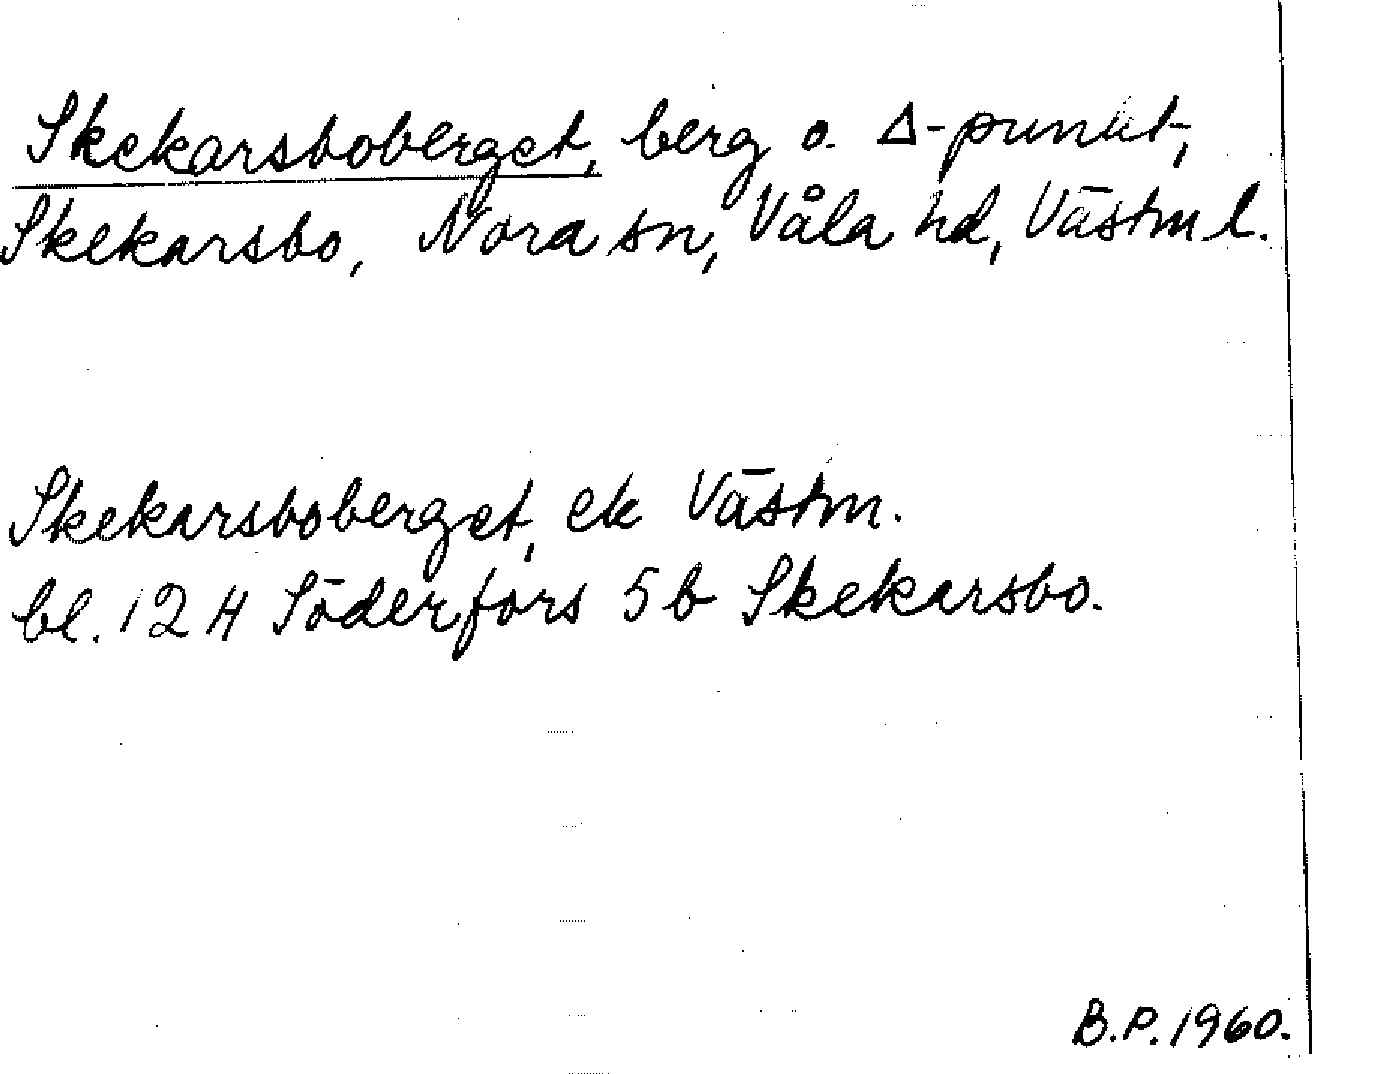 Skekarsboberget, berg o. Δ-punkt,
Skekarsbo, Nora sn, Våla hd, Västm l.
Skekarsboberget, ek Västm.
bl. 12 H Söderfors 5 b Skekarsbo.
B.P. 1960.